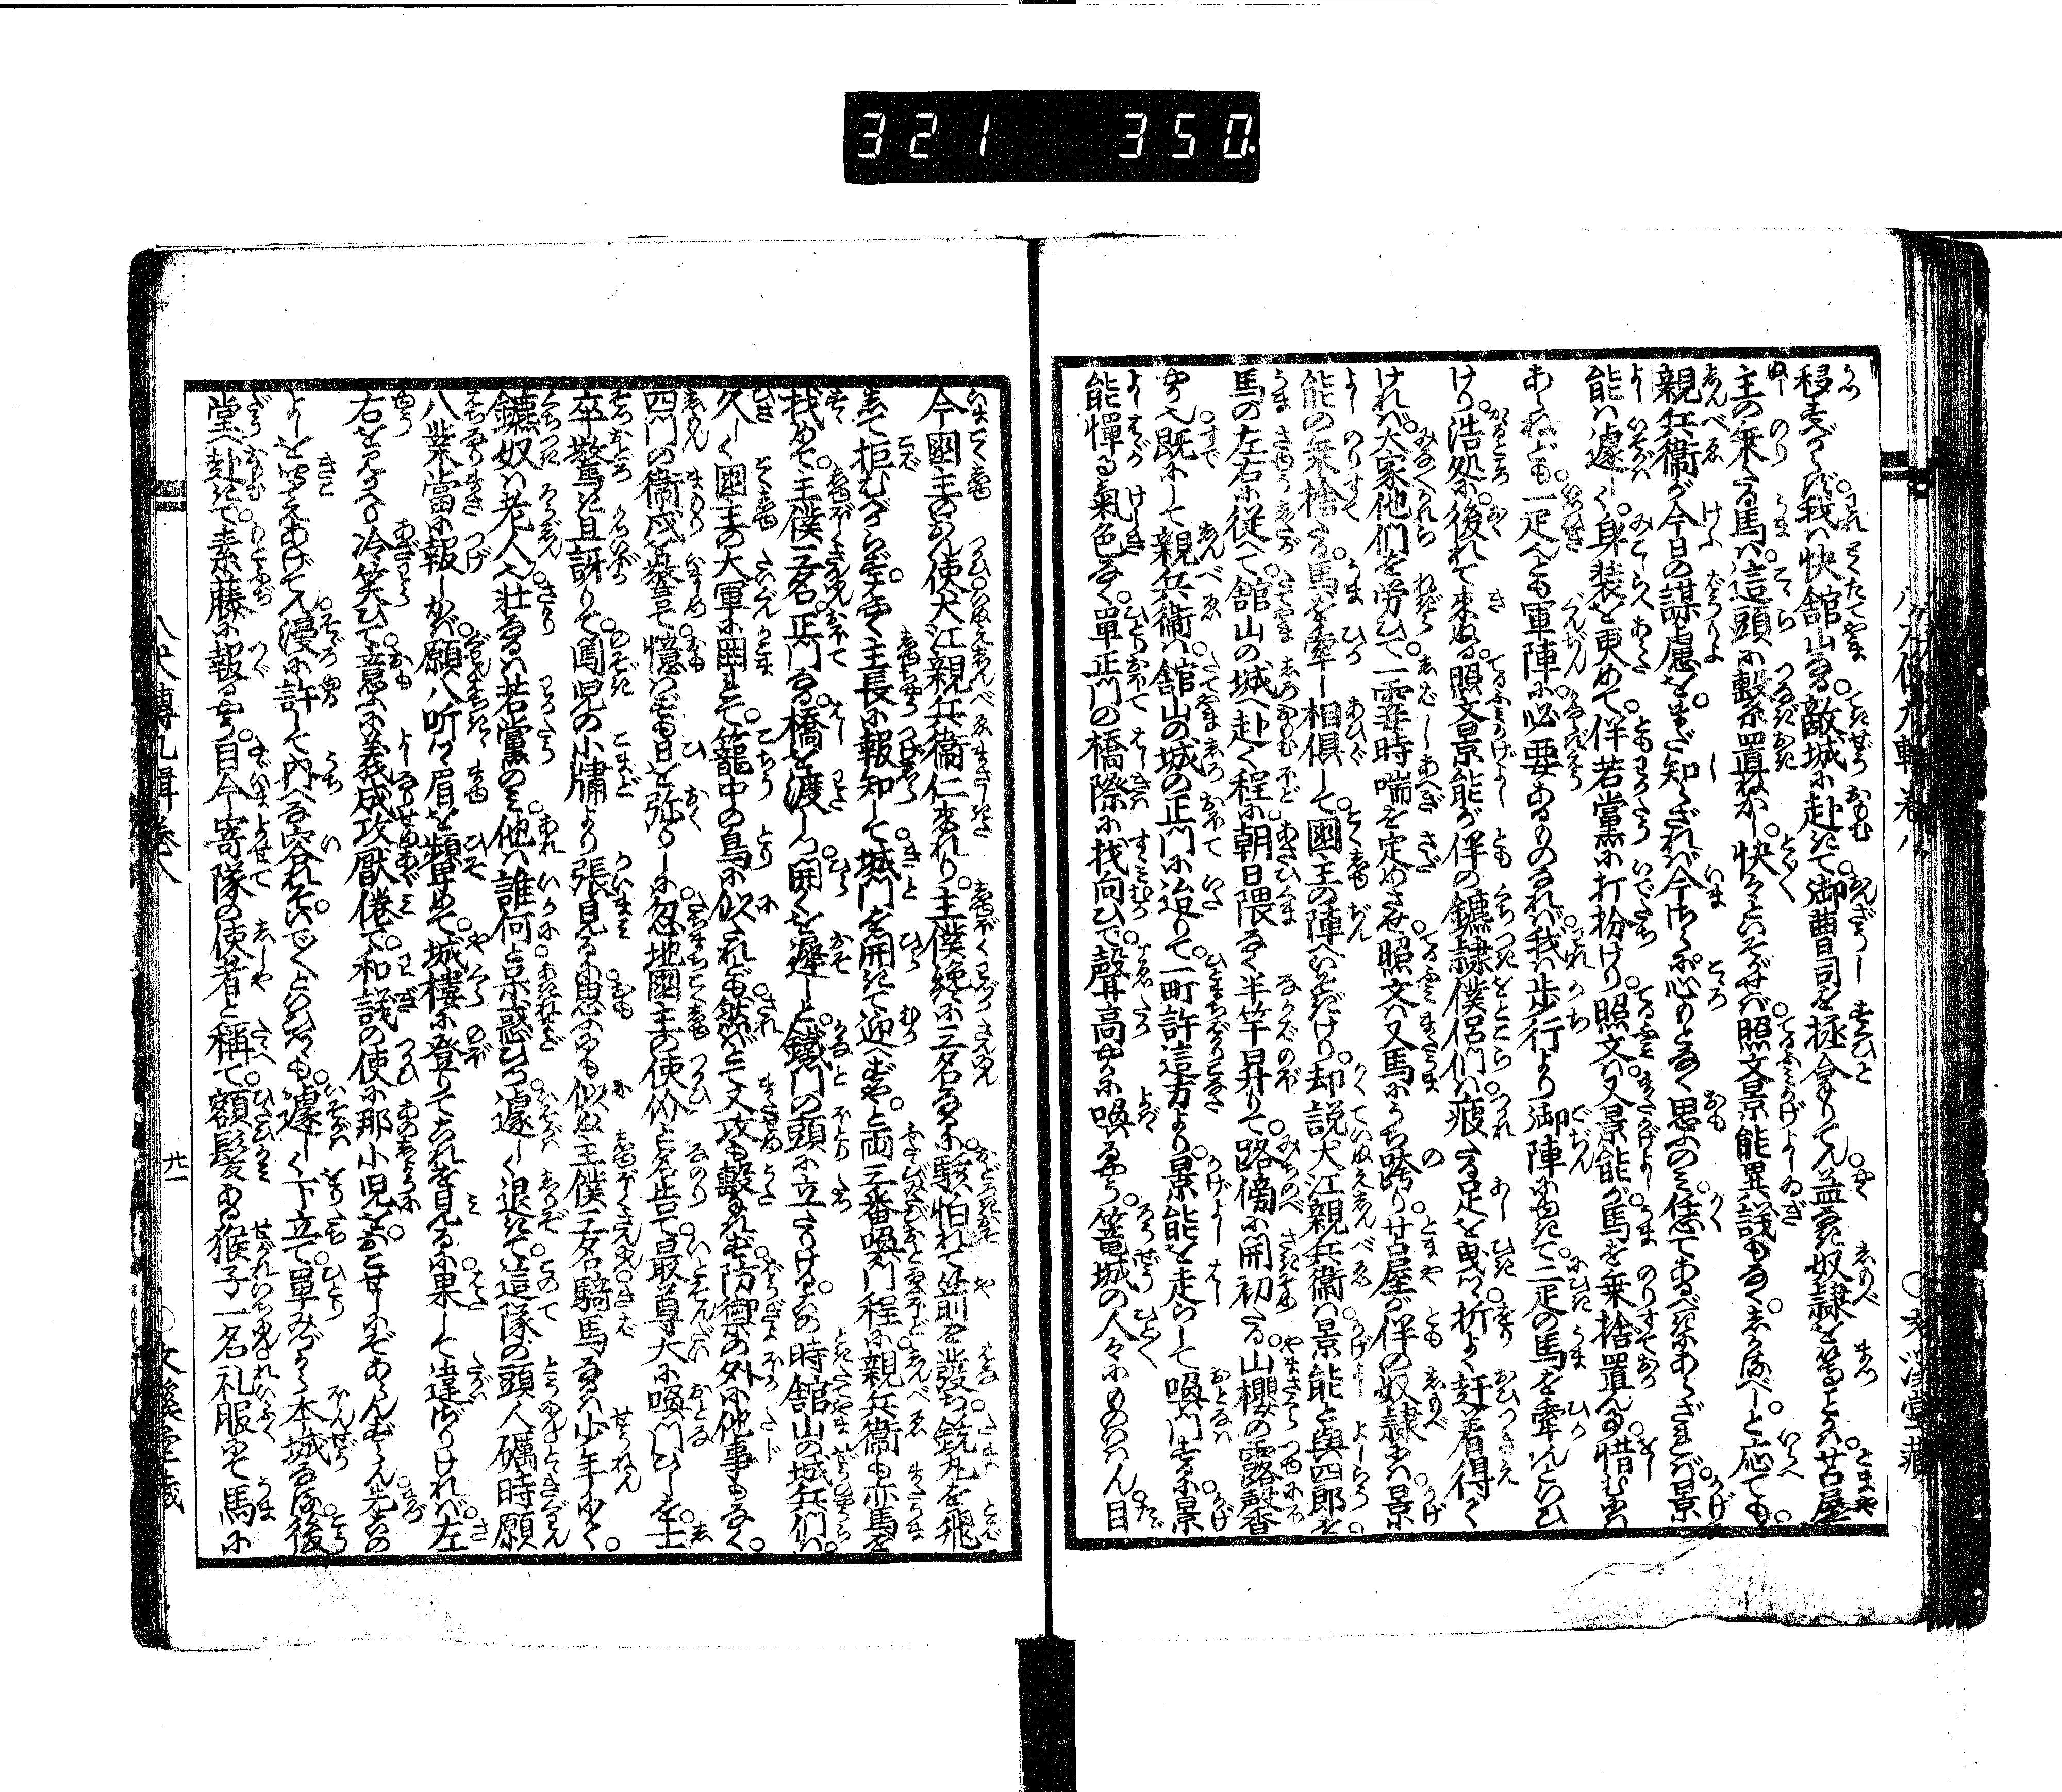 321 350.
移すべからず我は快舘山なる敵城に赴きて御曹司を拯ひ拿りてん安く益なき奴隷を等ことかは苫屋
主の乗たる馬は這頭に繋ぎ置ねかし快々といそがせば照文景能異議もなくしかるべしと応ても
親兵衛が今日の謀慮をまだ知らざれば今さらに心もとなく思ふのみ任てあるべきにあらざれば景
能は遽しく身装を更めて伴若黨に打扮けり照文は又景能が馬を乗捨置んは惜むに
あらねども一疋なりとも軍陣に必要あるものなれば我は歩行より御陣にゆきて二疋の馬を牽んといひ
けり浩処に後れて来ぬる照文景能が伴の鑣隷僕侶們は疲たる足を曳つゝ折よく赶着得て
ければ大家他們を労ひて一霎時喘を定めさせ照文は又馬にうち跨り苫屋が伴の奴隷には景
能の乗捨たる馬を牽し相倶して國主の陣へいそぎけり却説犬江親兵衛は景能と與四郎を
馬の左右に従へて舘山の城へ赴く程に朝日隈なく半竿昇りて路傍に開初たる山櫻の露馨香
安く既にして親兵衛は舘山の城の正門に迨りて一町許這方より景能を走らして喚門するに景
能憚る氣色なく單正門の橋際に找向ひて聲高やかに喚るやう篭城の人々にものいはん目
今國主のおん使犬江親兵衛仁来れり主僕纔に三名なるに駭怕れて箭を發ち銃丸を飛
して拒むべからず安く主長に報知して城門を開きて迎へずやと両三番喚門程に親兵衛も亦馬を
找めて主僕三名正門なる橋を渡しつ開くを遅しと鐵門の頭に立たりける當の時舘山の城兵們は
久しく國主の大軍に囲まれて籠中の鳥に似たれども然ばとて又攻も撃れず防禦の外に他事もなく
四門の衛戍を警めて憶はずも日を弥りしに忽地國主の使价と名告て最尊大に喚門ひしを士
卒驚き且訝りて闖児の小牖より張見るに思ふにも似ぬ主僕三名騎馬なるは少年にて
鑣奴は老人也壮なるは若黨のみ他は誰何と呆惑ひつ遽しく退きて這隊の頭人礪時願
八業當に報しかば願八听つゝ眉を顰めて城樓に登りてこれを見るに果して違ざりければ左
右を見かへり冷笑ひて意ふに義成攻厭倦て和議の使に那小児をおこせしにぞあらんずらん先この
よしを聞えあげてん漫に許して内へな容れそいでゝといひつゝも遽しく下立て單みづから本城なる後
堂へ赴きて素藤に報るやう目今寄隊の使者と稱て額髪ある猴子一名礼服にて馬に
八犬傳九輯卷八
廿一
文溪堂藏